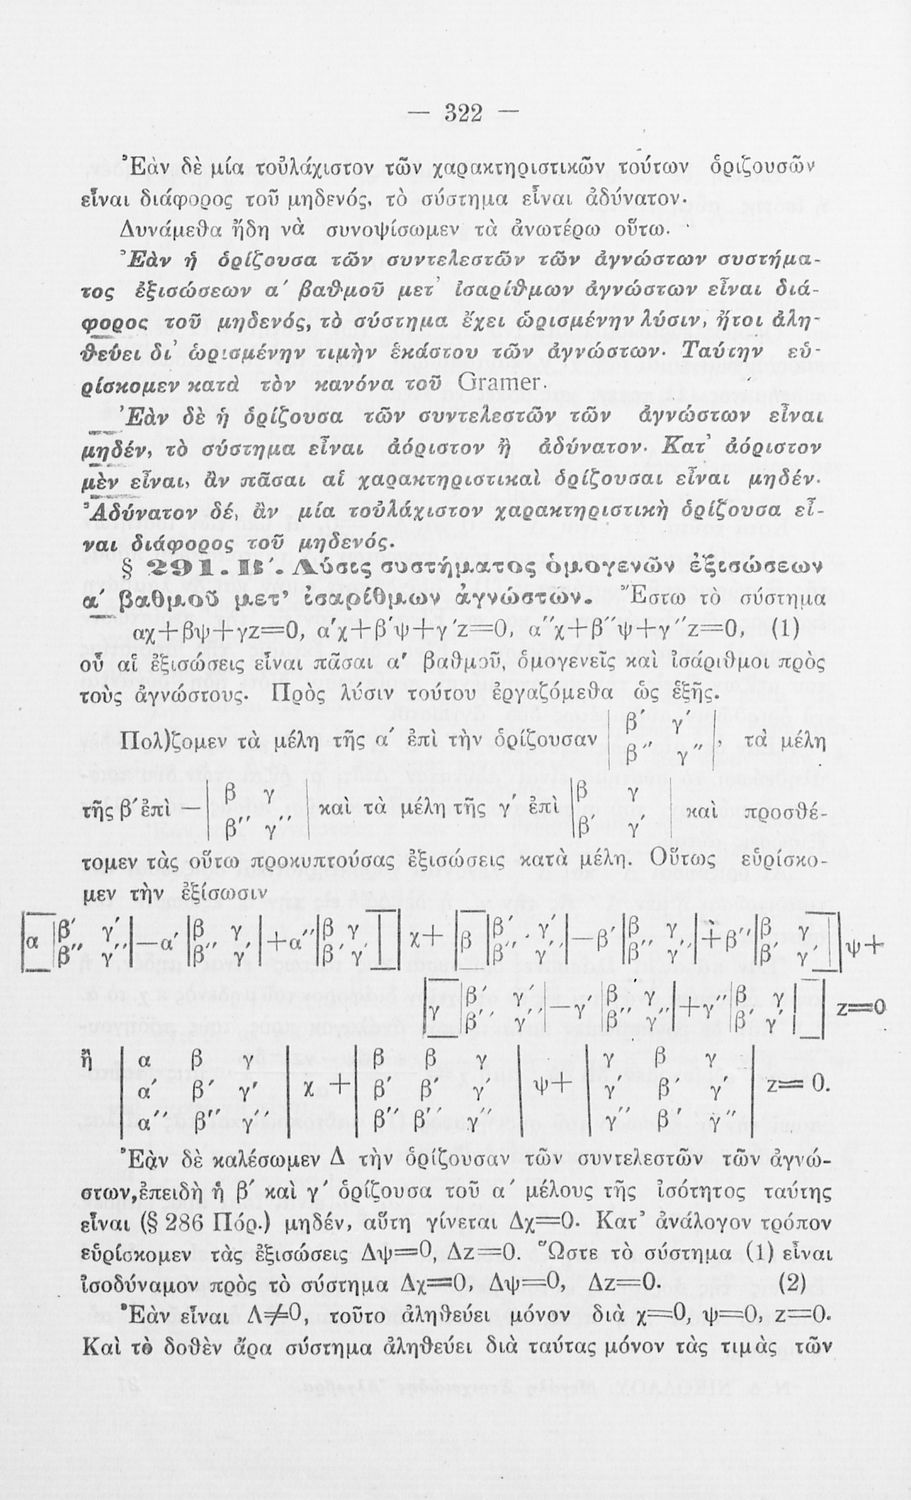 — 322 —
Ἐὰν δὲ μία τοὐλάχιστον τῶν χαρακτηριστικῶν τούτων ὁριζουσῶν
εἶναι διάφορος τοῦ μηδενός, τὸ σύστημα εἶναι ἀδύνατον.
Δυνάμεθα ἤδη νὰ συνοψίσωμεν τὰ ἀνωτέρω οὕτω.
Ἐὰν ἡ ὁρίζουσα τῶν συντελεστῶν τῶν ἀγνώστων συστήμα-
τος ἐξισώσεων α΄ βαθμοῦ μετ᾿ ἰσαρίθμων ἀγνώστων εἶναι διά-
φορος τοῦ μηδενός, τὸ σύστημα ἔχει ὡρισμένην λύσιν, ἤτοι ἀλη-
θεύει δι᾿ ὡρισμένην τιμὴν ἑκάστου τῶν ἀγνώστων. Ταύτην εὑ-
ρίσκομεν κατὰ τὸν κανόνα τοῦ Gramer.
Ἐὰν δὲ ἡ ὁρίζουσα τῶν συντελεστῶν τῶν ἀγνώστων εἶναι
μηδέν, τὸ σύστημα εἶναι ἀόριστον ἢ ἀδύνατον. Κατ᾿ ἀόριστον
μὲν εἶναι, ἂν πᾶσαι αἱ χαρακτηριστικαὶ ὁρίζουσαι εἶναι μηδέν.
Ἀδύνατον δέ, ἂν μία τοὐλάχιστον χαρακτηριστικὴ ὁρίζουσα εἶ-
ναι διάφορος τοῦ μηδενός.
§ 291. Β΄. Λύσις συστήματος ὁμογενῶν ἐξισώσεων
α΄ βαθμοῦ μετ᾿ ἰσαρίθμων ἀγνώστων. Ἔστω τὸ σύστημα
αχ+βψ+γz=0, α΄χ+β΄ψ+γ΄z=0, α΄΄χ+β΄΄ψ+γ΄΄z=0, (1)
οὗ αἱ ἐξισώσεις εἶναι πᾶσαι α΄ βαθμοῦ, ὁμογενεῖς καὶ ἰσάριθμοι πρὸς
τοὺς ἀγνώστους. Πρὸς λύσιν τούτου ἐργαζόμεθα ὡς ἑξῆς.
Πολ)ζομεν τὰ μέλη τῆς α΄ ἐπὶ τὴν ὁρίζουσαν | β΄ γ΄ |, τὰ μέλη
| β΄΄ γ΄΄ |
τῆς β΄ ἐπὶ — | β γ | καὶ τὰ μέλη τῆς γ΄ ἐπὶ | β γ | καὶ προσθέ-
| β΄΄ γ΄΄ | | β΄ γ΄ |
τομεν τὰς οὕτω προκυπτούσας ἐξισώσεις κατὰ μέλη. Οὕτως εὑρίσκο-
μεν τὴν ἐξίσωσιν
[α |β΄ γ΄| —α΄ |β γ| +α΄΄ |β γ|] χ+ [β |β΄ γ΄| —β΄ |β γ| +β΄΄ |β γ|] ψ+
|β΄΄ γ΄΄| |β΄΄ γ΄΄| |β΄ γ΄| |β΄΄ γ΄΄| |β΄΄ γ΄΄| |β΄ γ΄|
[γ |β΄ γ΄| —γ΄ |β γ| +γ΄΄ |β γ|] z=0
|β΄΄ γ΄΄| |β΄΄ γ΄΄| |β΄ γ΄|
ἢ | α β γ | | β β γ | | γ β γ |
| α΄ β΄ γ΄ | χ + | β΄ β΄ γ΄ | ψ+ | γ΄ β΄ γ΄ | z= 0.
| α΄΄ β΄΄ γ΄΄ | | β΄΄ β΄΄ γ΄΄ | | γ΄΄ β΄ γ΄΄ |
Ἐὰν δὲ καλέσωμεν Δ τὴν ὁρίζουσαν τῶν συντελεστῶν τῶν ἀγνώ-
στων, ἐπειδὴ ἡ β΄ καὶ γ΄ ὁρίζουσα τοῦ α΄ μέλους τῆς ἰσότητος ταύτης
εἶναι (§ 286 Πόρ.) μηδέν, αὕτη γίνεται Δχ=0. Κατ᾿ ἀνάλογον τρόπον
εὑρίσκομεν τὰς ἐξισώσεις Δψ=0, Δz=0. Ὥστε τὸ σύστημα (1) εἶναι
ἰσοδύναμον πρὸς τὸ σύστημα Δχ=0, Δψ=0, Δz=0. (2)
Ἐὰν εἶναι Δ≠0, τοῦτο ἀληθεύει μόνον διὰ χ=0, ψ=0, z=0.
Καὶ τὸ δοθὲν ἄρα σύστημα ἀληθεύει διὰ ταύτας μόνον τὰς τιμὰς τῶν